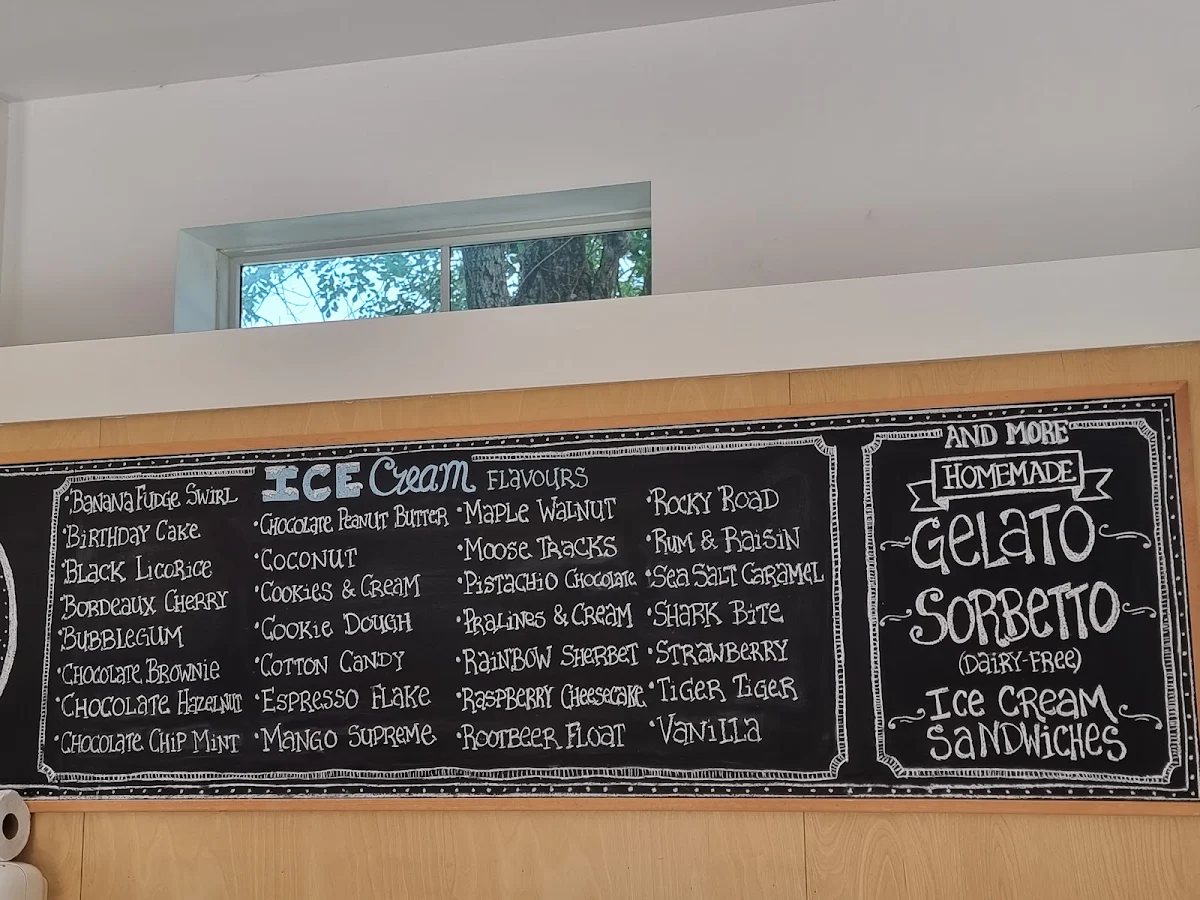 ICE Cream FLAVOURS
·Banana Fudge Swirl
·Birthday Cake
·Black Licorice
·Bordeaux Cherry
·Bubblegum
·Chocolate Brownie
·Chocolate Hazelnut
·Chocolate Chip Mint
·Chocolate Peanut Butter
·Coconut
·Cookies & Cream
·Cookie Dough
·Cotton Candy
·Espresso Flake
·Mango Supreme
·Maple Walnut
·Moose Tracks
·Pistachio Chocolate
·Pralines & Cream
·Rainbow Sherbet
·Raspberry Cheesecake
·Rootbeer Float
·Rocky Road
·Rum & Raisin
·Sea Salt Caramel
·Shark Bite
·Strawberry
·Tiger Tiger
·Vanilla
AND MORE
HOMEMADE
GELATO
SORBETTO
(DAIRY-FREE)
ICE CREAM
SANDWICHES